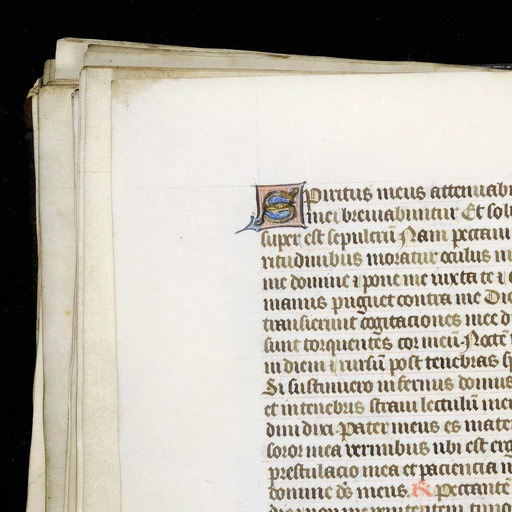 Spiritus meus attenuab
mei breuiabuntur Et sol
super est sepulcrũ Nam peccaui
ritudinibus moratur oculus m
me domine ⁊ pone me iuxta te ⁊ c
manus pugnet contra me Die
transierunt cogitaciones mee d
sunt torquentes cor meũ Noctẽ
in diem ⁊ rursũ post tenebras sp
Si sustinuero infernus domus
et in tenebris straui lectulũ me
dini dixi Pater meus es mater
soror mea vermibus ubi est erg
prestulacio mea et paciencia m
domine dñs meus. ℟ Peccantẽ